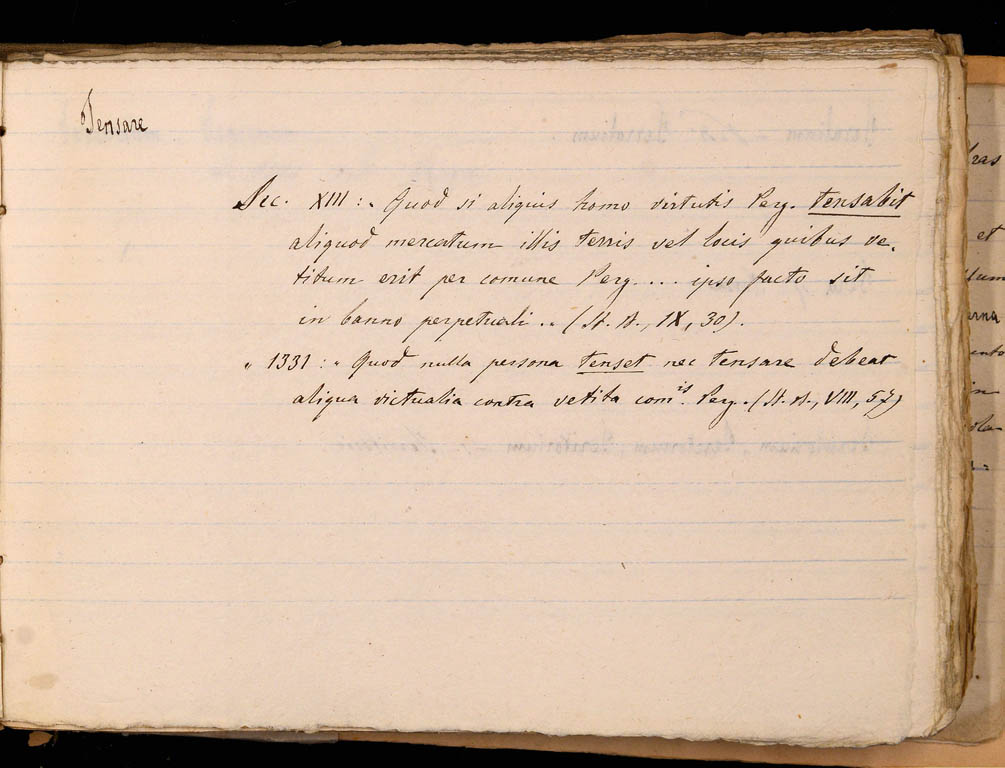 Tensare
Sec. XIII : „ Quod si aliquis homo virtutis Perg. tensabit
aliquod mercatum illis terris vel locis quibus ve-
titum erit per comune Perg.... ipso facto sit
in banno perpetuali „ (St. B., IX, 30).
„ 1331 : „ Quod nulla persona tenset nec tensare debeat
aliqua victualia contra vetita com.is Perg. (St. B., VIII, 57)
ras
et
llum
erna
ento
in
ola